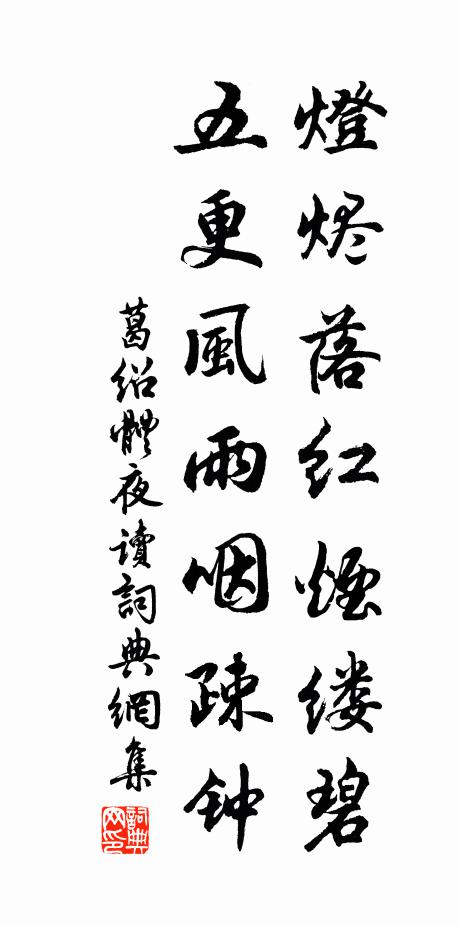 燈烬落红煙缕碧
五更風雨咽疎钟
葛绍體夜讀詞典網集
詞典网印